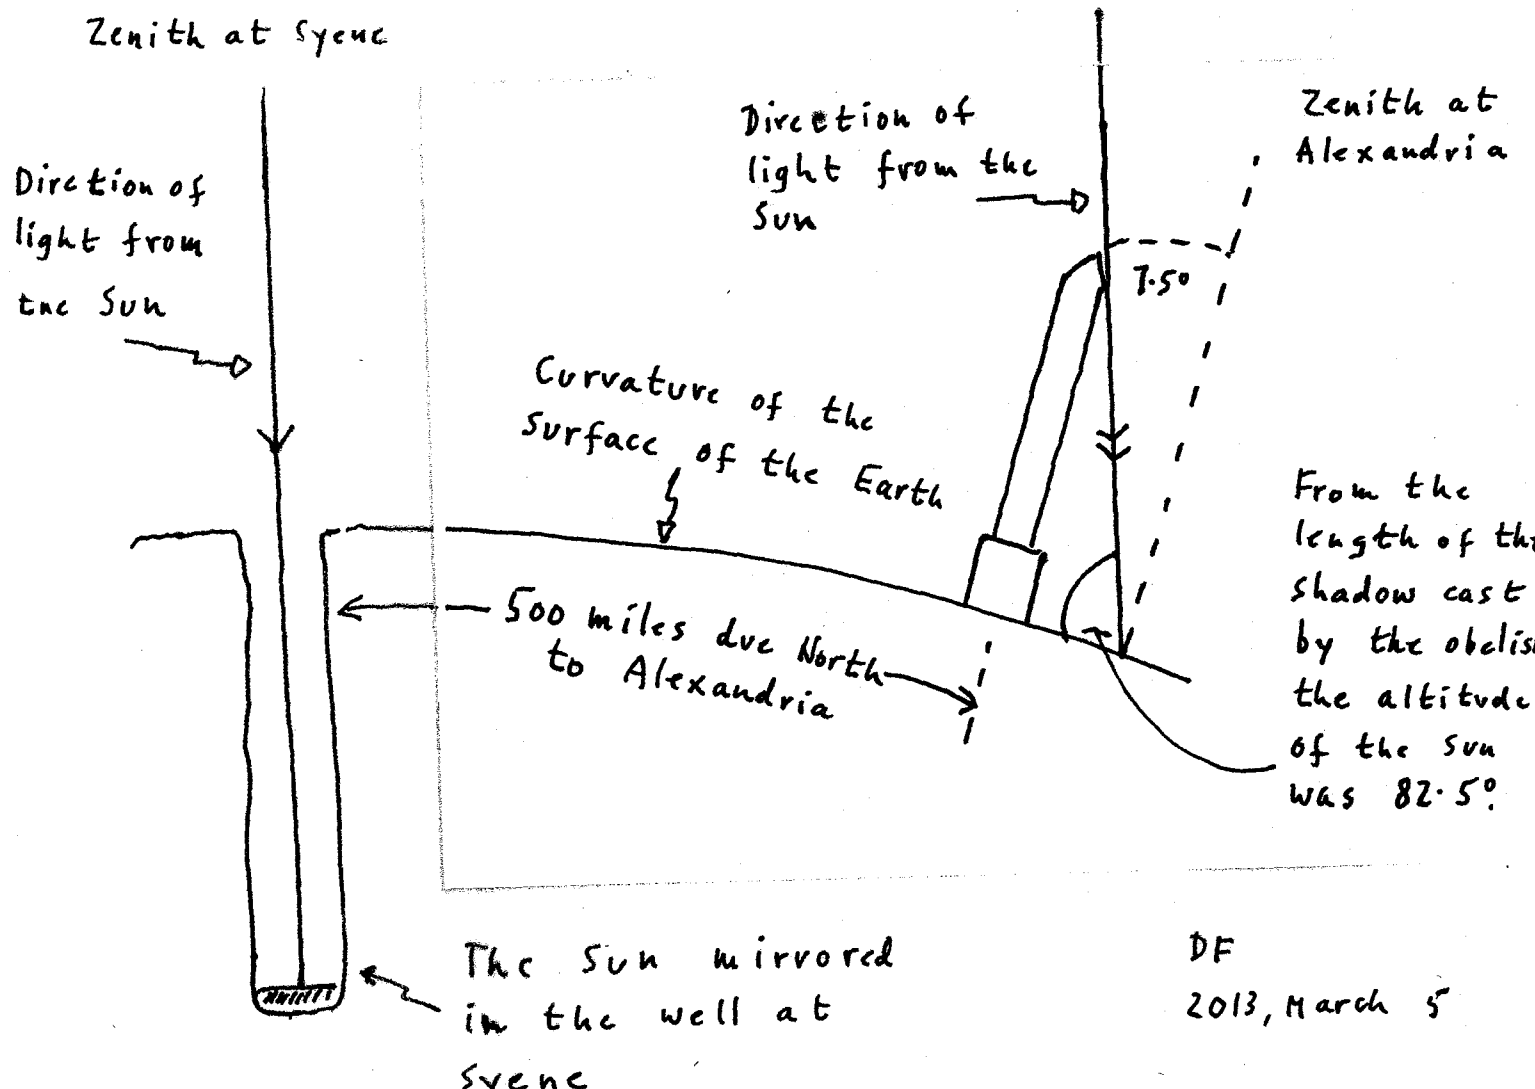 Zenith at Syene
Direction of
light from
the Sun
Direction of
light from the
Sun
Zenith at
Alexandria
7.5°
Curvature of the
surface of the Earth
500 miles due North
to Alexandria
From the
length of the
shadow cast
by the obelis
the altitude
of the Sun
was 82.5°.
The Sun mirrored
in the well at
Syene
DF
2013, March 5